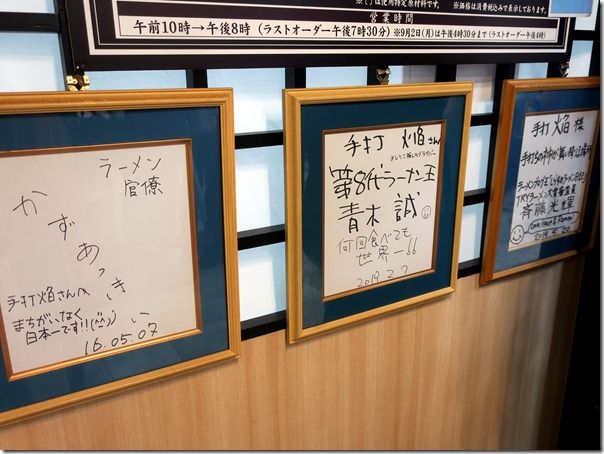 ※価格は消費税込みで表示しております。
営業時間
午前10時→午後8時(ラストオーダー午後7時30分)※9月2日(月)は午後4時30分まで(ラストオーダー午後4時)
ラーメン
官僚
かずあっきぃ
手打焔さんへ
まちがいなく
日本一です!!(^^)
16.05.07
手打 焔さん
第8代ラーメン王
青木 誠
何回食べても
世界一!!
2019.2.7
手打 焔 様
斉藤光輝
2019.5.20